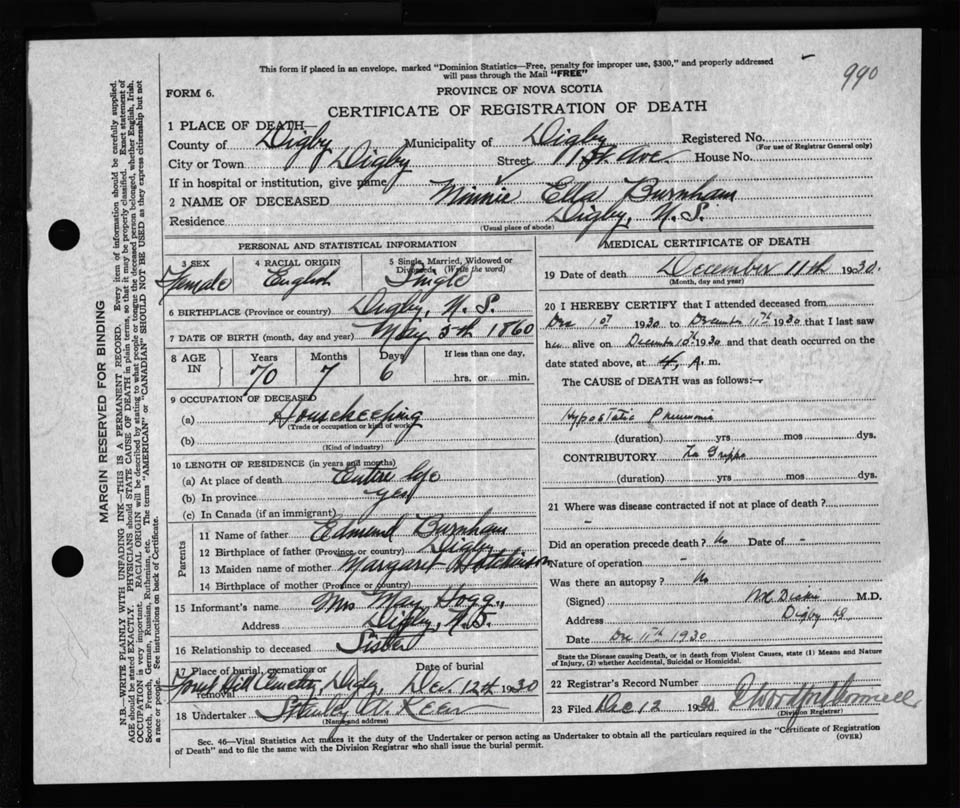 This form if placed in an envelope, marked "Dominion Statistics—Free, penalty for improper use, $300," and properly addressed
will pass through the Mail "FREE"
990
FORM 6.
PROVINCE OF NOVA SCOTIA
CERTIFICATE OF REGISTRATION OF DEATH
1 PLACE OF DEATH—
County of Digby Municipality of Digby Registered No.
(For use of Registrar General only)
City or Town Digby Street 1st Ave House No.
If in hospital or institution, give name
2 NAME OF DECEASED Minnie Ella Burnham
Residence Digby, N.S.
(Usual place of abode)
PERSONAL AND STATISTICAL INFORMATION
3 SEX 4 RACIAL ORIGIN 5 Single, Married, Widowed or
Divorced, (Write the word)
Female English Single
6 BIRTHPLACE (Province or country) Digby, N.S.
7 DATE OF BIRTH (month, day and year) May 5th 1860
8 AGE IN Years Months Days If less than one day,
70 7 6 hrs. or min.
9 OCCUPATION OF DECEASED
(a) Housekeeping
(Trade or occupation or kind of work)
(b)
(Kind of industry)
10 LENGTH OF RESIDENCE (in years and months)
(a) At place of death Entire life
(b) In province yes
(c) In Canada (if an immigrant)
Parents
11 Name of father Edmund Burnham
12 Birthplace of father (Province or country) Digby
13 Maiden name of mother Margaret Hotchinson
14 Birthplace of mother (Province or country)
15 Informant's name Mrs May Hogg,
Address Digby, N.S.
16 Relationship to deceased Sister
17 Place of burial, cremation or removal Date of burial
Forest Hill Cemetery, Digby, Dec. 12th 1930
18 Undertaker Stanley W. Keen
(Name and address)
MEDICAL CERTIFICATE OF DEATH
19 Date of death December 11th 1930.
(Month, day and year)
20 I HEREBY CERTIFY that I attended deceased from
Dec 1st 1930 to December 11th 1930 that I last saw
her alive on December 10th 1930 and that death occurred on the
date stated above, at 4 A. m.
The CAUSE of DEATH was as follows:—
Hypostatic Pneumonia
(duration) yrs mos dys.
CONTRIBUTORY La Grippe
(duration) yrs mos dys.
21 Where was disease contracted if not at place of death?
-
Did an operation precede death? No Date of -
Nature of operation -
Was there an autopsy? No
(Signed) M.D.
Address Digby
Date Dec 11th 1930
State the Disease causing Death, or in death from Violent Causes, state (1) Means and Nature
of Injury, (2) whether Accidental, Suicidal or Homicidal.
22 Registrar's Record Number
23 Filed Dec 12 1930
(Division Registrar)
Sec. 46—Vital Statistics Act makes it the duty of the Undertaker or person acting as Undertaker to obtain all the particulars required in the "Certificate of Registration
of Death" and to file the same with the Division Registrar who shall issue the burial permit.
(OVER)
MARGIN RESERVED FOR BINDING
N.B.—WRITE PLAINLY WITH UNFADING INK—THIS IS A PERMANENT RECORD. Every item of information should be carefully supplied.
AGE should be stated EXACTLY. PHYSICIANS should STATE CAUSE OF DEATH in plain terms, so that it may be properly classified. Exact statement of
OCCUPATION is very important. RACIAL ORIGIN will be described by stating to what people or tongue the deceased person belonged, whether English, Irish,
Scotch, French, German, Russian, Ruthenian, etc. The terms "AMERICAN" or "CANADIAN" SHOULD NOT BE USED as they express citizenship but not
a race or people. See instructions on back of Certificate.